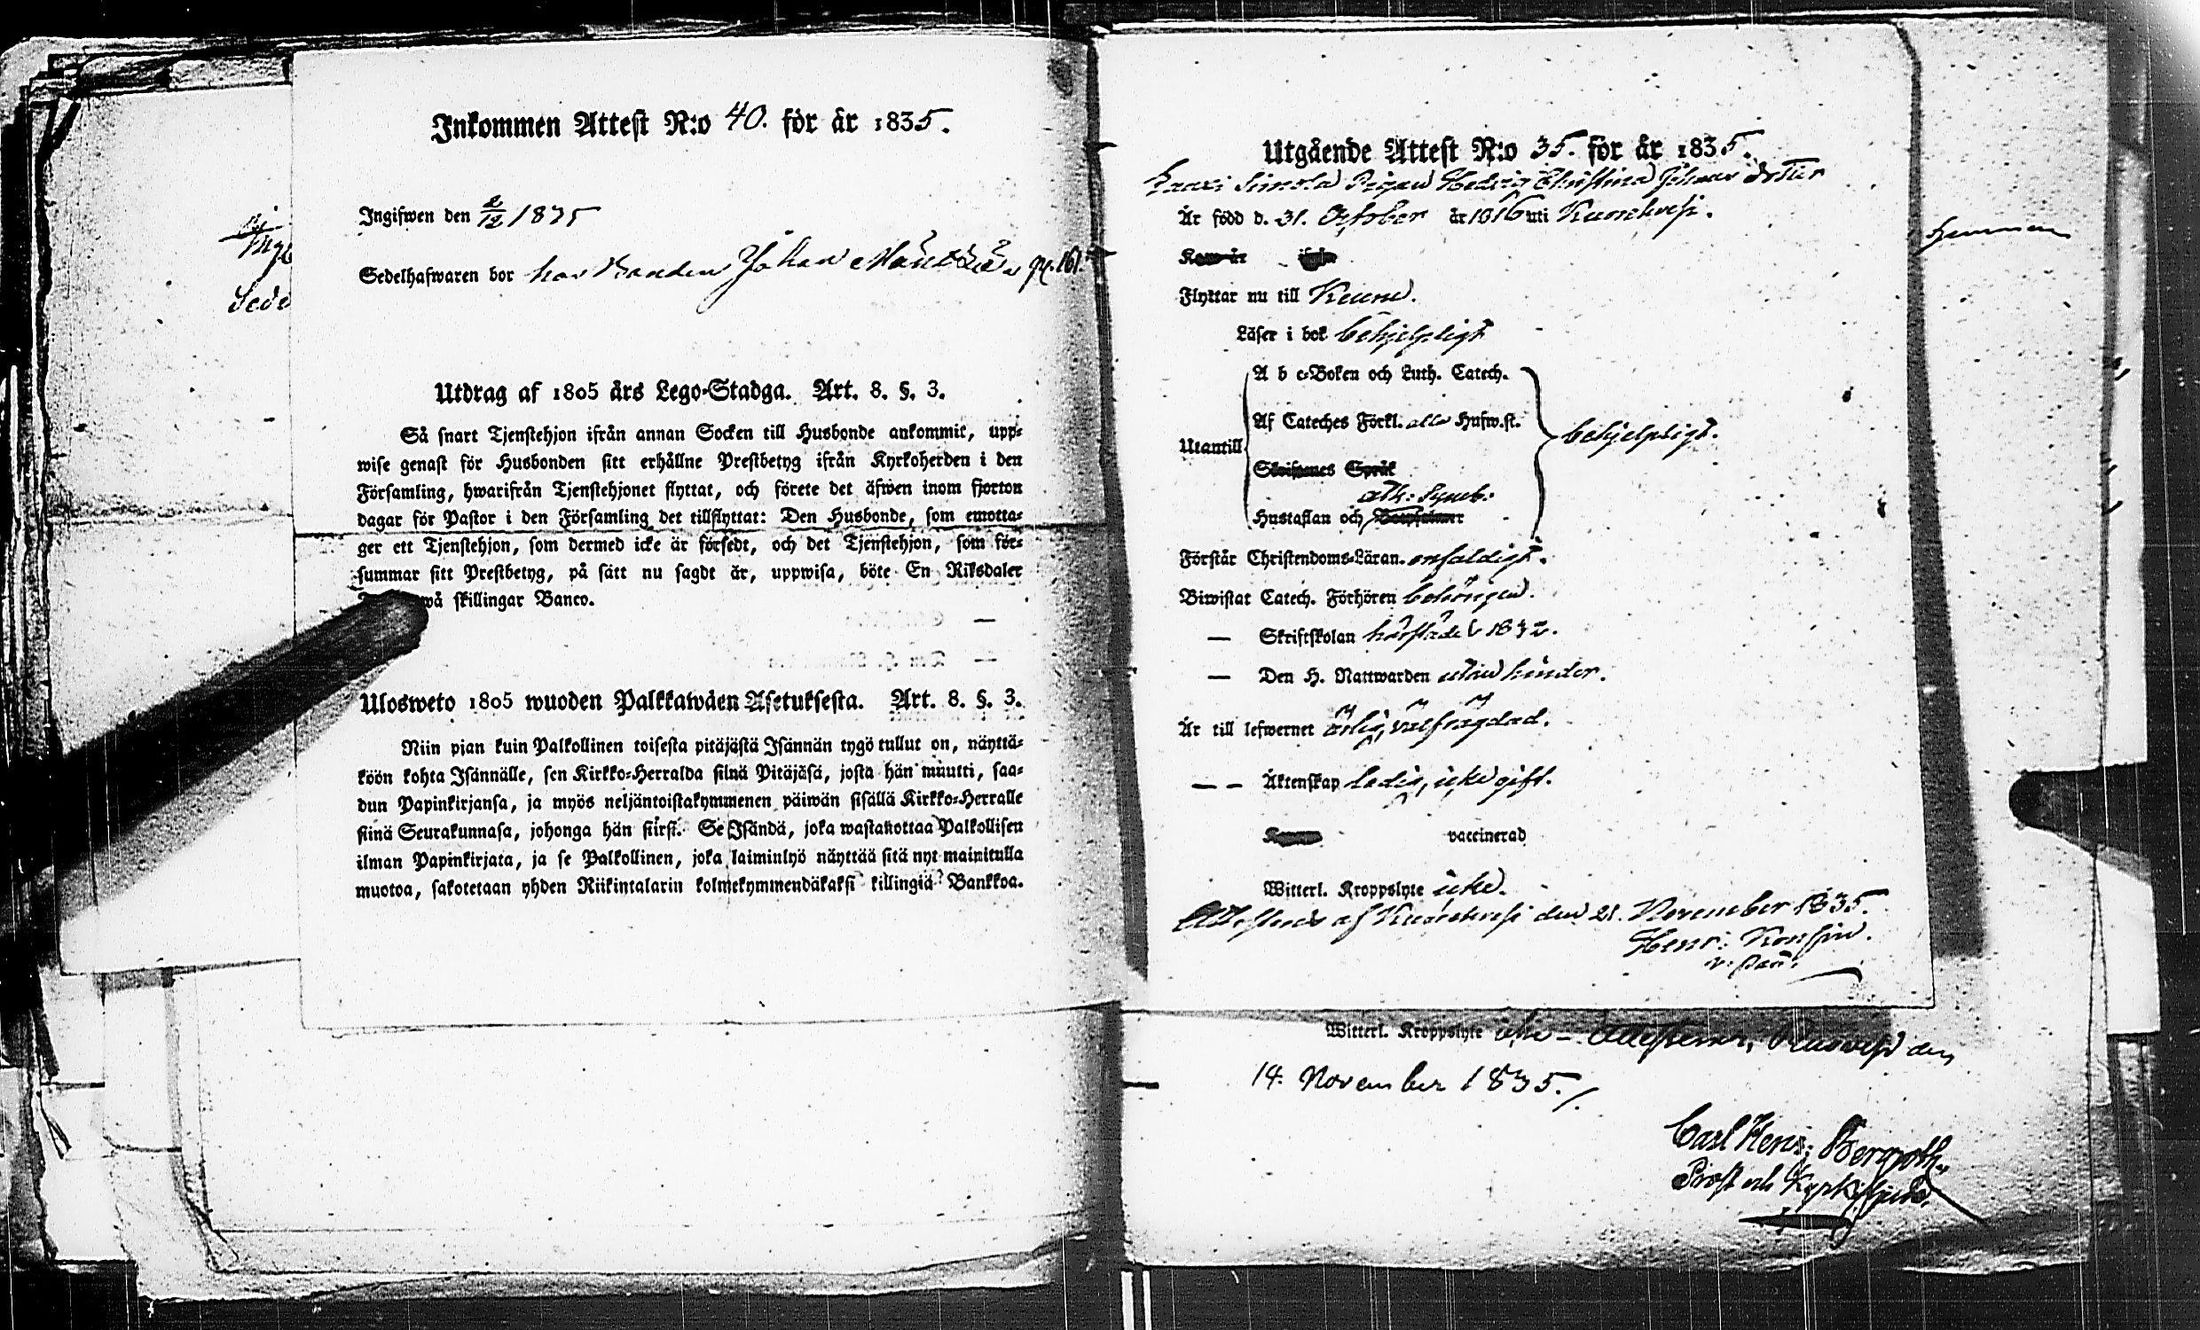 Inkommen Attest N:o 40. för år 1835.
Ingifwen den 2/12 1835
Sedelhafwaren bor hos Bonden Johan
Utdrag af 1805 års Lego-Stadga. Art. 8. §. 3.
Så snart Tjenstehjon ifrån annan Socken till Husbonde ankommit, upp-
wise genast för Husbonden sitt erhållne Prestbetyg ifrån Kyrkoherden i den
Församling, hwarifrån Tjenstehjonet flyttat, och förete det äfwen inom fjorton
dagar för Pastor i den Församling det tillflyttat: Den Husbonde, som emotta-
ger ett Tjenstehjon, som dermed icke är försedt, och det Tjenstehjon, som för-
summar sitt Prestbetyg, på sätt nu sagdt är, uppwisa, böte En Riksdaler
skillingar Banco.
Ulosweto 1805 wuoden Palkkawäen Asetuksesta. Art. 8. §. 3.
Niin pian kuin Palkollinen toisesta pitäjästä Isännän tygö tullut on, näyttä-
köön kohta Isännälle, sen Kirkko-Herralda siinä Pitäjäsä, josta hän muutti, saa-
dun Papinkirjansa, ja myös neljäntoistakymmenen päiwän sisällä Kirkko-Herralle
siinä Seurakunnasa, johonga hän siirsi. Se Isändä, joka wastanottaa Palkollisen
ilman Papinkirjata, ja se Palkollinen, joka laiminlyö näyttää sitä nyt mainitulla
muotoa, sakotetaan yhden Riikintalarin kolmekymmendäkaksi killingiä Bankkoa.
Utgående Attest N:o 35. för år 1835.
Simola Pigan Hedvig Christina Johans dotter
Är född d. 31. October år 1816 uti Kuorehvesi.
Kom år ifrån
Flyttar nu till Keuru.
Läser i bok behjelpligt
A b c-Boken och Luth. Catech.
Af Cateches Förkl. alla Hufw.st.
Utantill
behjelpligt.
Skriftenes Språk
ath: Symb:
Hustaflan och Botpsalmer
Förstår Christendoms-Läran. enfaldigt.
Biwistat Catech. Förhören behörigen.
— Skriftskolan härstädes 1832.
— Den H. Nattwarden utan hinder.
Är till lefwernet ärlig, välfrägdad.
— — Äktenskap ledig, icke gift.
vaccinerad
Witterl. Kroppslyte icke.
Attesteras af Kuorehvesi den 21. November 1835.
Henr: Konsin.
v: Past:
Witterl. Kroppslyte icke — Attesterar, Ruovesi den
14. November 1835./.
Carl Henr: Bergroth.
Prost och Kyrkoherde.